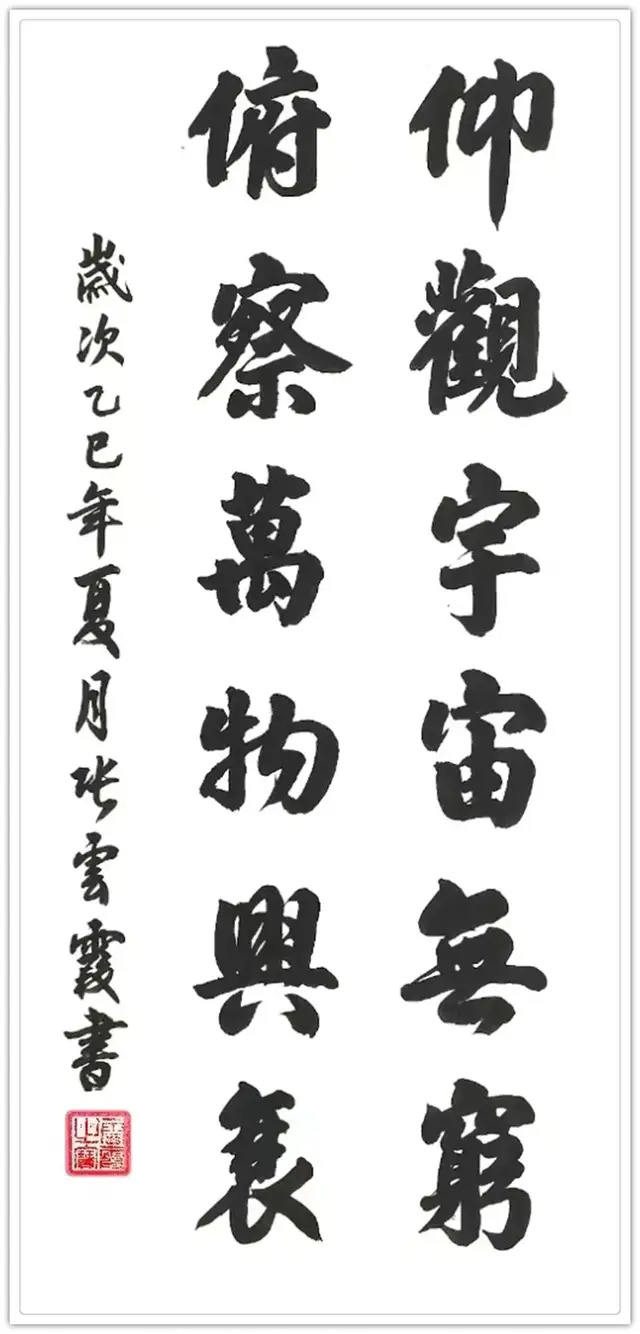 仰觀宇宙無窮
俯察萬物興衰
歲次乙巳年夏月张雲霞書